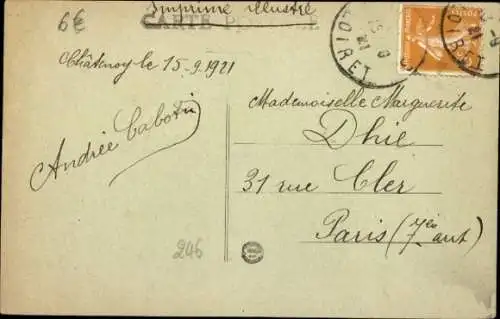 6€
Imprimé illustré
CARTE POSTALE
Châtenoy le 15-9-1921
LOIRET
LOIRET
Andrée Cabotin
Mademoiselle Marguerite
Dhie
31 rue Cler
Paris (7e arrt)
246